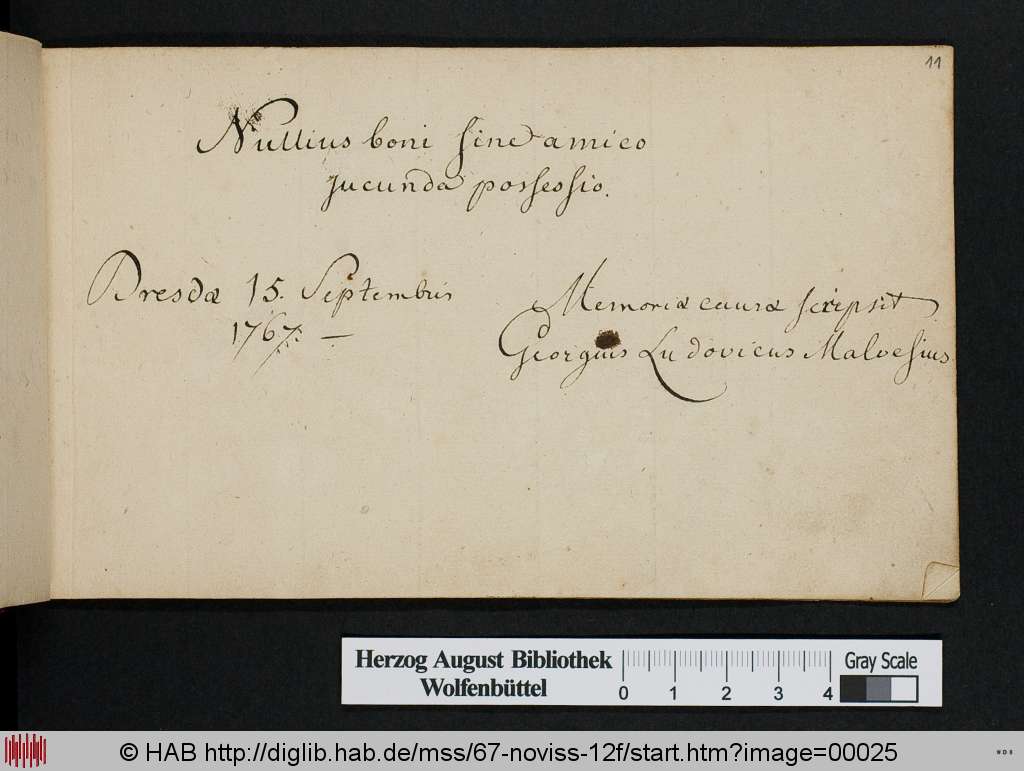 11
Nullius boni sine amico
jucunda possessio.
Dresdæ 15. Septembris
1767. —
Memoriæ causæ scripsit
Georgius Ludovicus Malvesius.
Herzog August Bibliothek
Wolfenbüttel
0 1 2 3 4
Gray Scale
© HAB http://diglib.hab.de/mss/67-noviss-12f/start.htm?image=00025
WDB